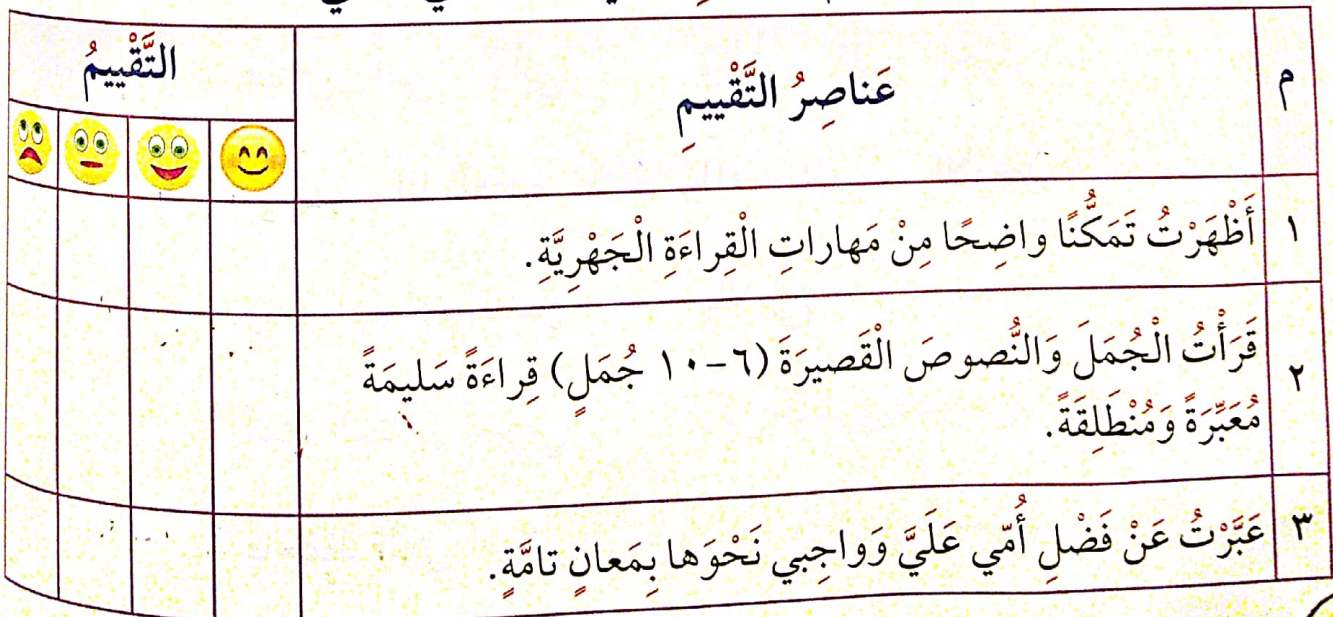 م
عَناصِرُ التَّقْييمِ
التَّقْييمُ
١ أَظْهَرْتُ تَمَكُّنًا واضِحًا مِنْ مَهاراتِ الْقِراءَةِ الْجَهْرِيَّةِ.
٢ قَرَأْتُ الْجُمَلَ وَالنُّصوصَ الْقَصيرَةَ (٦-١٠ جُمَلٍ) قِراءَةً سَليمَةً
مُعَبِّرَةً وَمُنْطَلِقَةً.
٣ عَبَّرْتُ عَنْ فَضْلِ أُمّي عَلَيَّ وَواجِبي نَحْوَها بِمَعانٍ تامَّةٍ.